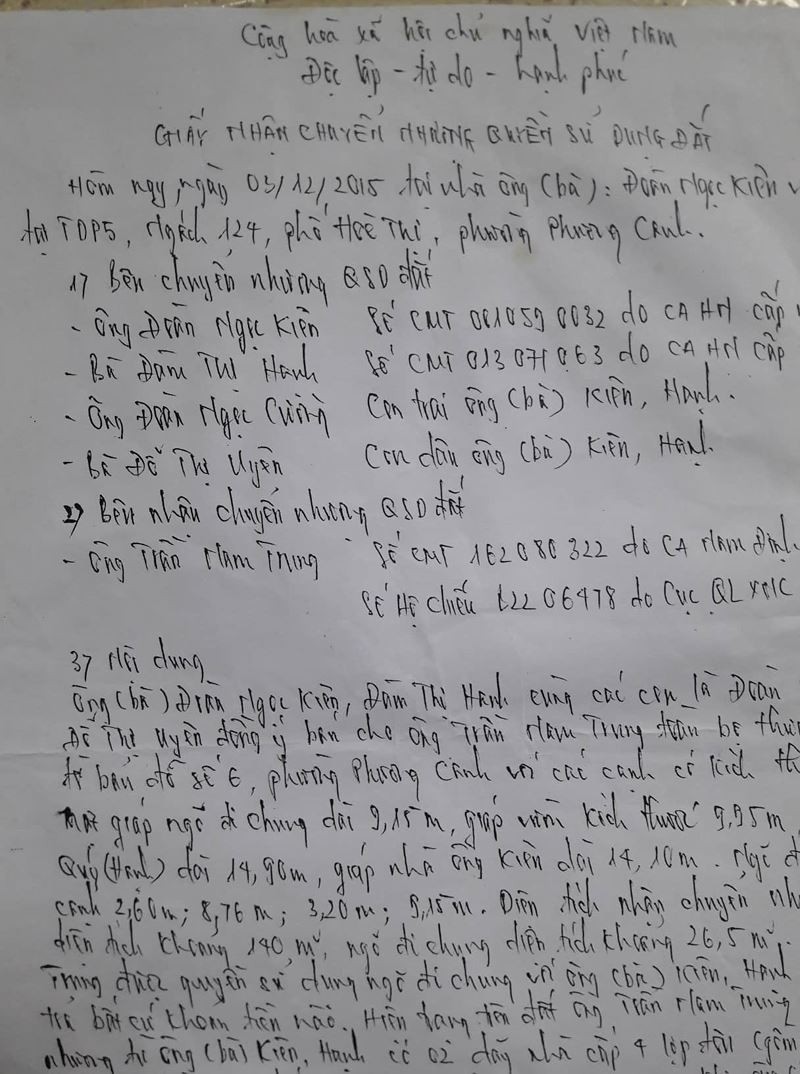 Cộng hoà xã hội chủ nghĩa Việt Nam
Độc lập - tự do - hạnh phúc
GIẤY NHẬN CHUYỂN NHƯỢNG QUYỀN SỬ DỤNG ĐẤT
Hôm nay, ngày 03/12/2015 tại nhà ông (bà): Đoàn Ngọc Kiên
tại TDP5, Ngách 124, phố Hoè Thị, phường Phương Canh.
1) Bên chuyển nhượng QSD đất
- Ông Đoàn Ngọc Kiên Số CMT 001059 0032 do CA HN cấp
- Bà Đàm Thị Hạnh Số CMT 013071063 do CA HN cấp
- Ông Đoàn Ngọc Cường Con trai ông (bà) Kiên, Hạnh.
- Bà Đỗ Thị Uyên Con dâu ông (bà) Kiên, Hạnh
2) Bên nhận chuyển nhượng QSD đất
- Ông Trần Nam Trung Số CMT 162080322 do CA Nam Định
Số Hộ chiếu 2206478 do Cục QLXNC
3) Nội dung
Ông (bà) Đoàn Ngọc Kiên, Đàm Thị Hạnh cùng các con là Đoàn
Đỗ Thị Uyên đồng ý bán cho ông Trần Nam Trung toàn bộ
tờ bản đồ số 6, phường Phương Canh với các cạnh có kích
Mặt giáp ngõ đi chung dài 9,15m, giáp vườn kích thước 9,95m,
Quý (Hạnh) dài 14,90m, giáp nhà ông Kiên dài 14,10m. Ngõ
cạnh 2,60m; 8,76m; 3,20m; 9,15m. Diện tích nhận chuyển
diện tích khoảng 140 m², ngõ đi chung diện tích khoảng 26,5 m².
Trung được quyền sử dụng ngõ đi chung với ông (bà) Kiên, Hạnh
trả bất cứ khoản tiền nào. Hiện trạng trên đất ông Trần Nam Trung
nhượng từ ông (bà) Kiên, Hạnh có 02 dãy nhà cấp 4 lợp tôn (gồm